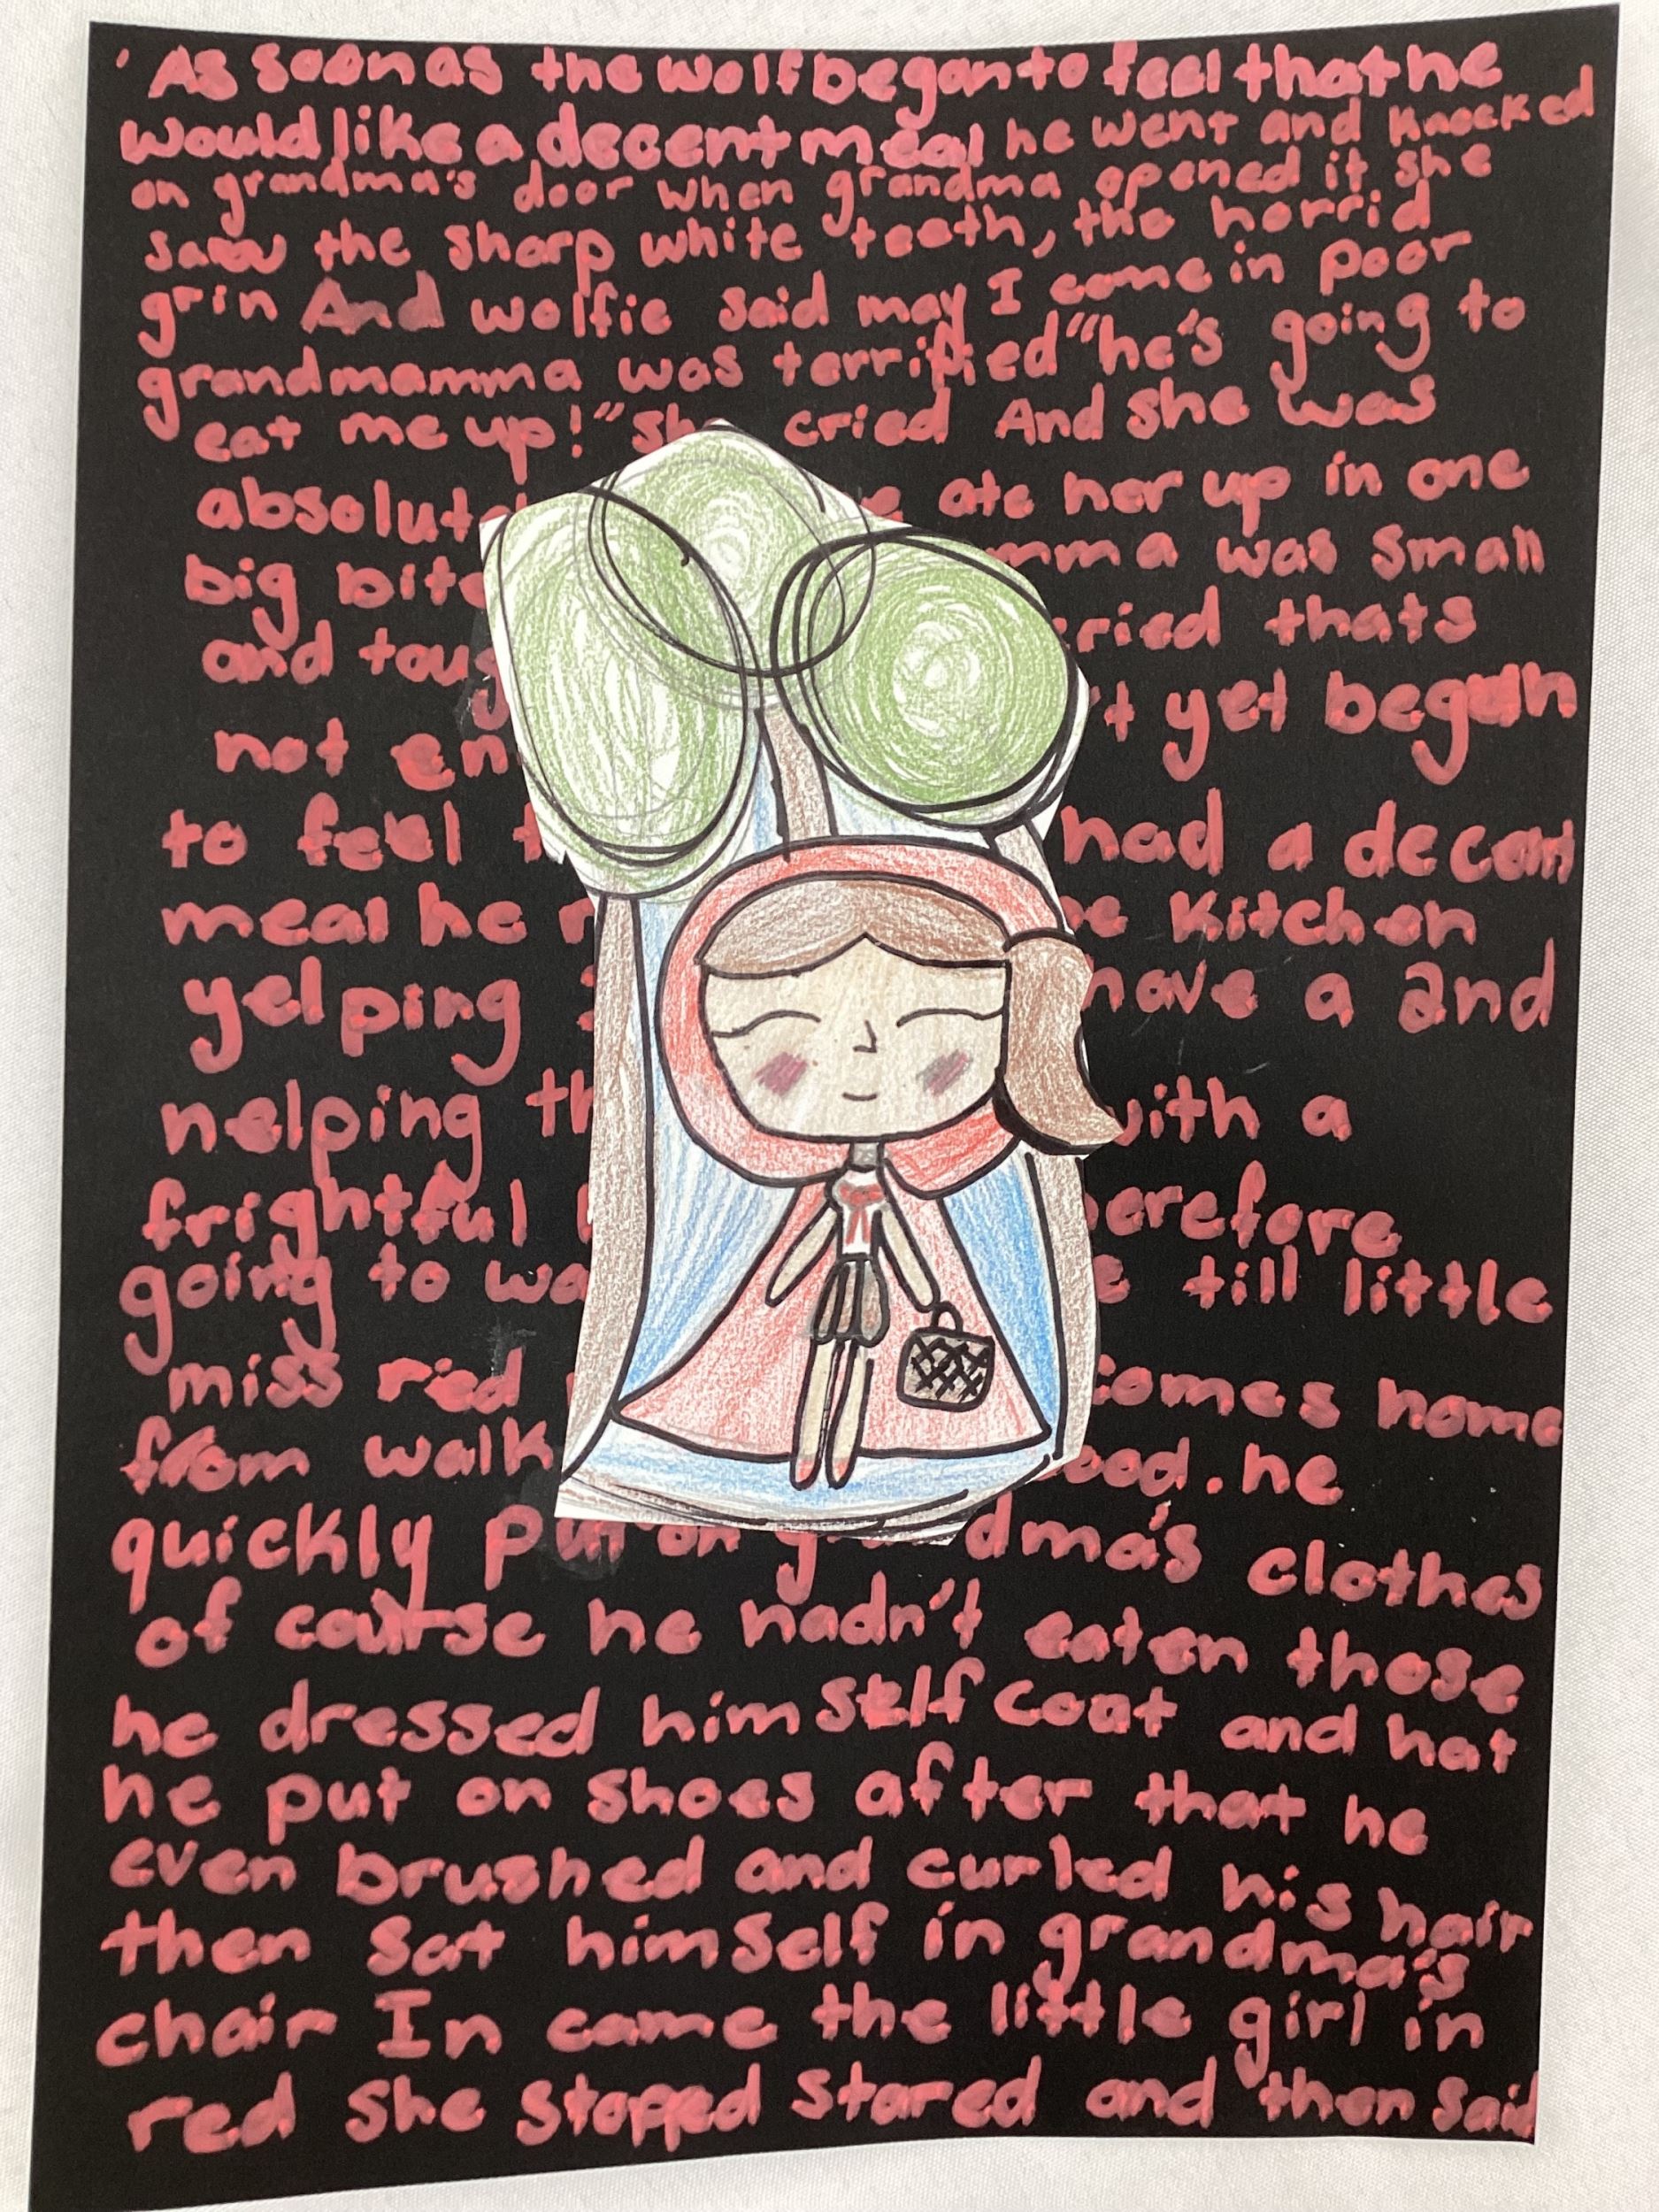 ' As soon as the wolf began to feel that he
would like a decent meal he went and knocked
on grandma's door when grandma opened it she
saw the sharp white teeth, the horrid
grin And wolfie said may I come in poor
grandmamma was terrified "he's going to
eat me up!" she cried And she was
absolut ate her up in one
big bite mma was small
and toug ried thats
not en 't yet began
to feel had a decent
meal he kitchen
yelping have a and
helping th with a
frightful herefore
going to wa till little
miss red comes home
from walk ood. he
quickly put on grandma's clothes
of course he hadn't eaten those
he dressed himself coat and hat
he put on shoes after that he
even brushed and curled his hair
then sat himself in grandma's
chair In came the little girl in
red she stopped stared and then said